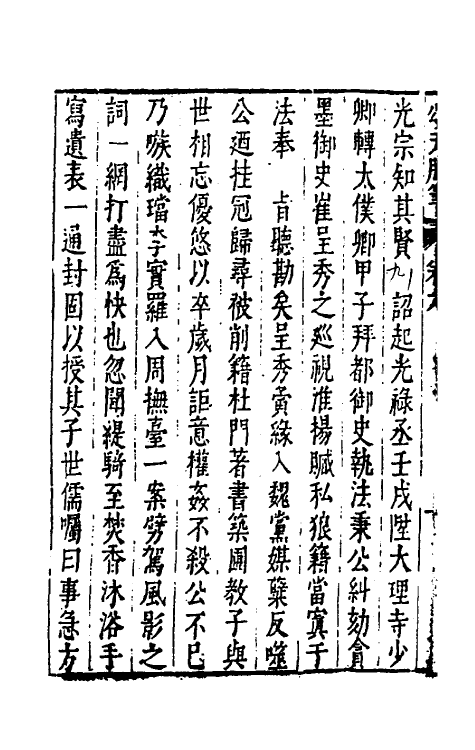 光宗知其賢九詔起光祿丞壬戌陞大理寺少
卿轉太僕卿甲子拜都御史執法秉公糾劾貪
墨御史崔呈秀之巡視淮揚贓私狼籍當寘于
法奉 旨聽勘矣呈秀夤緣入魏黨媒糵反噬
公迺挂冠歸尋被削籍杜門著書築圃教子與
世相忘優悠以卒歲月詎意權姦不殺公不巳
乃嗾織璫李實羅入周撫臺一案劈駕風影之
詞一網打盡爲快也忽聞緹騎至焚香沐浴手
寫遺表一通封固以授其子世儒囑曰事急方